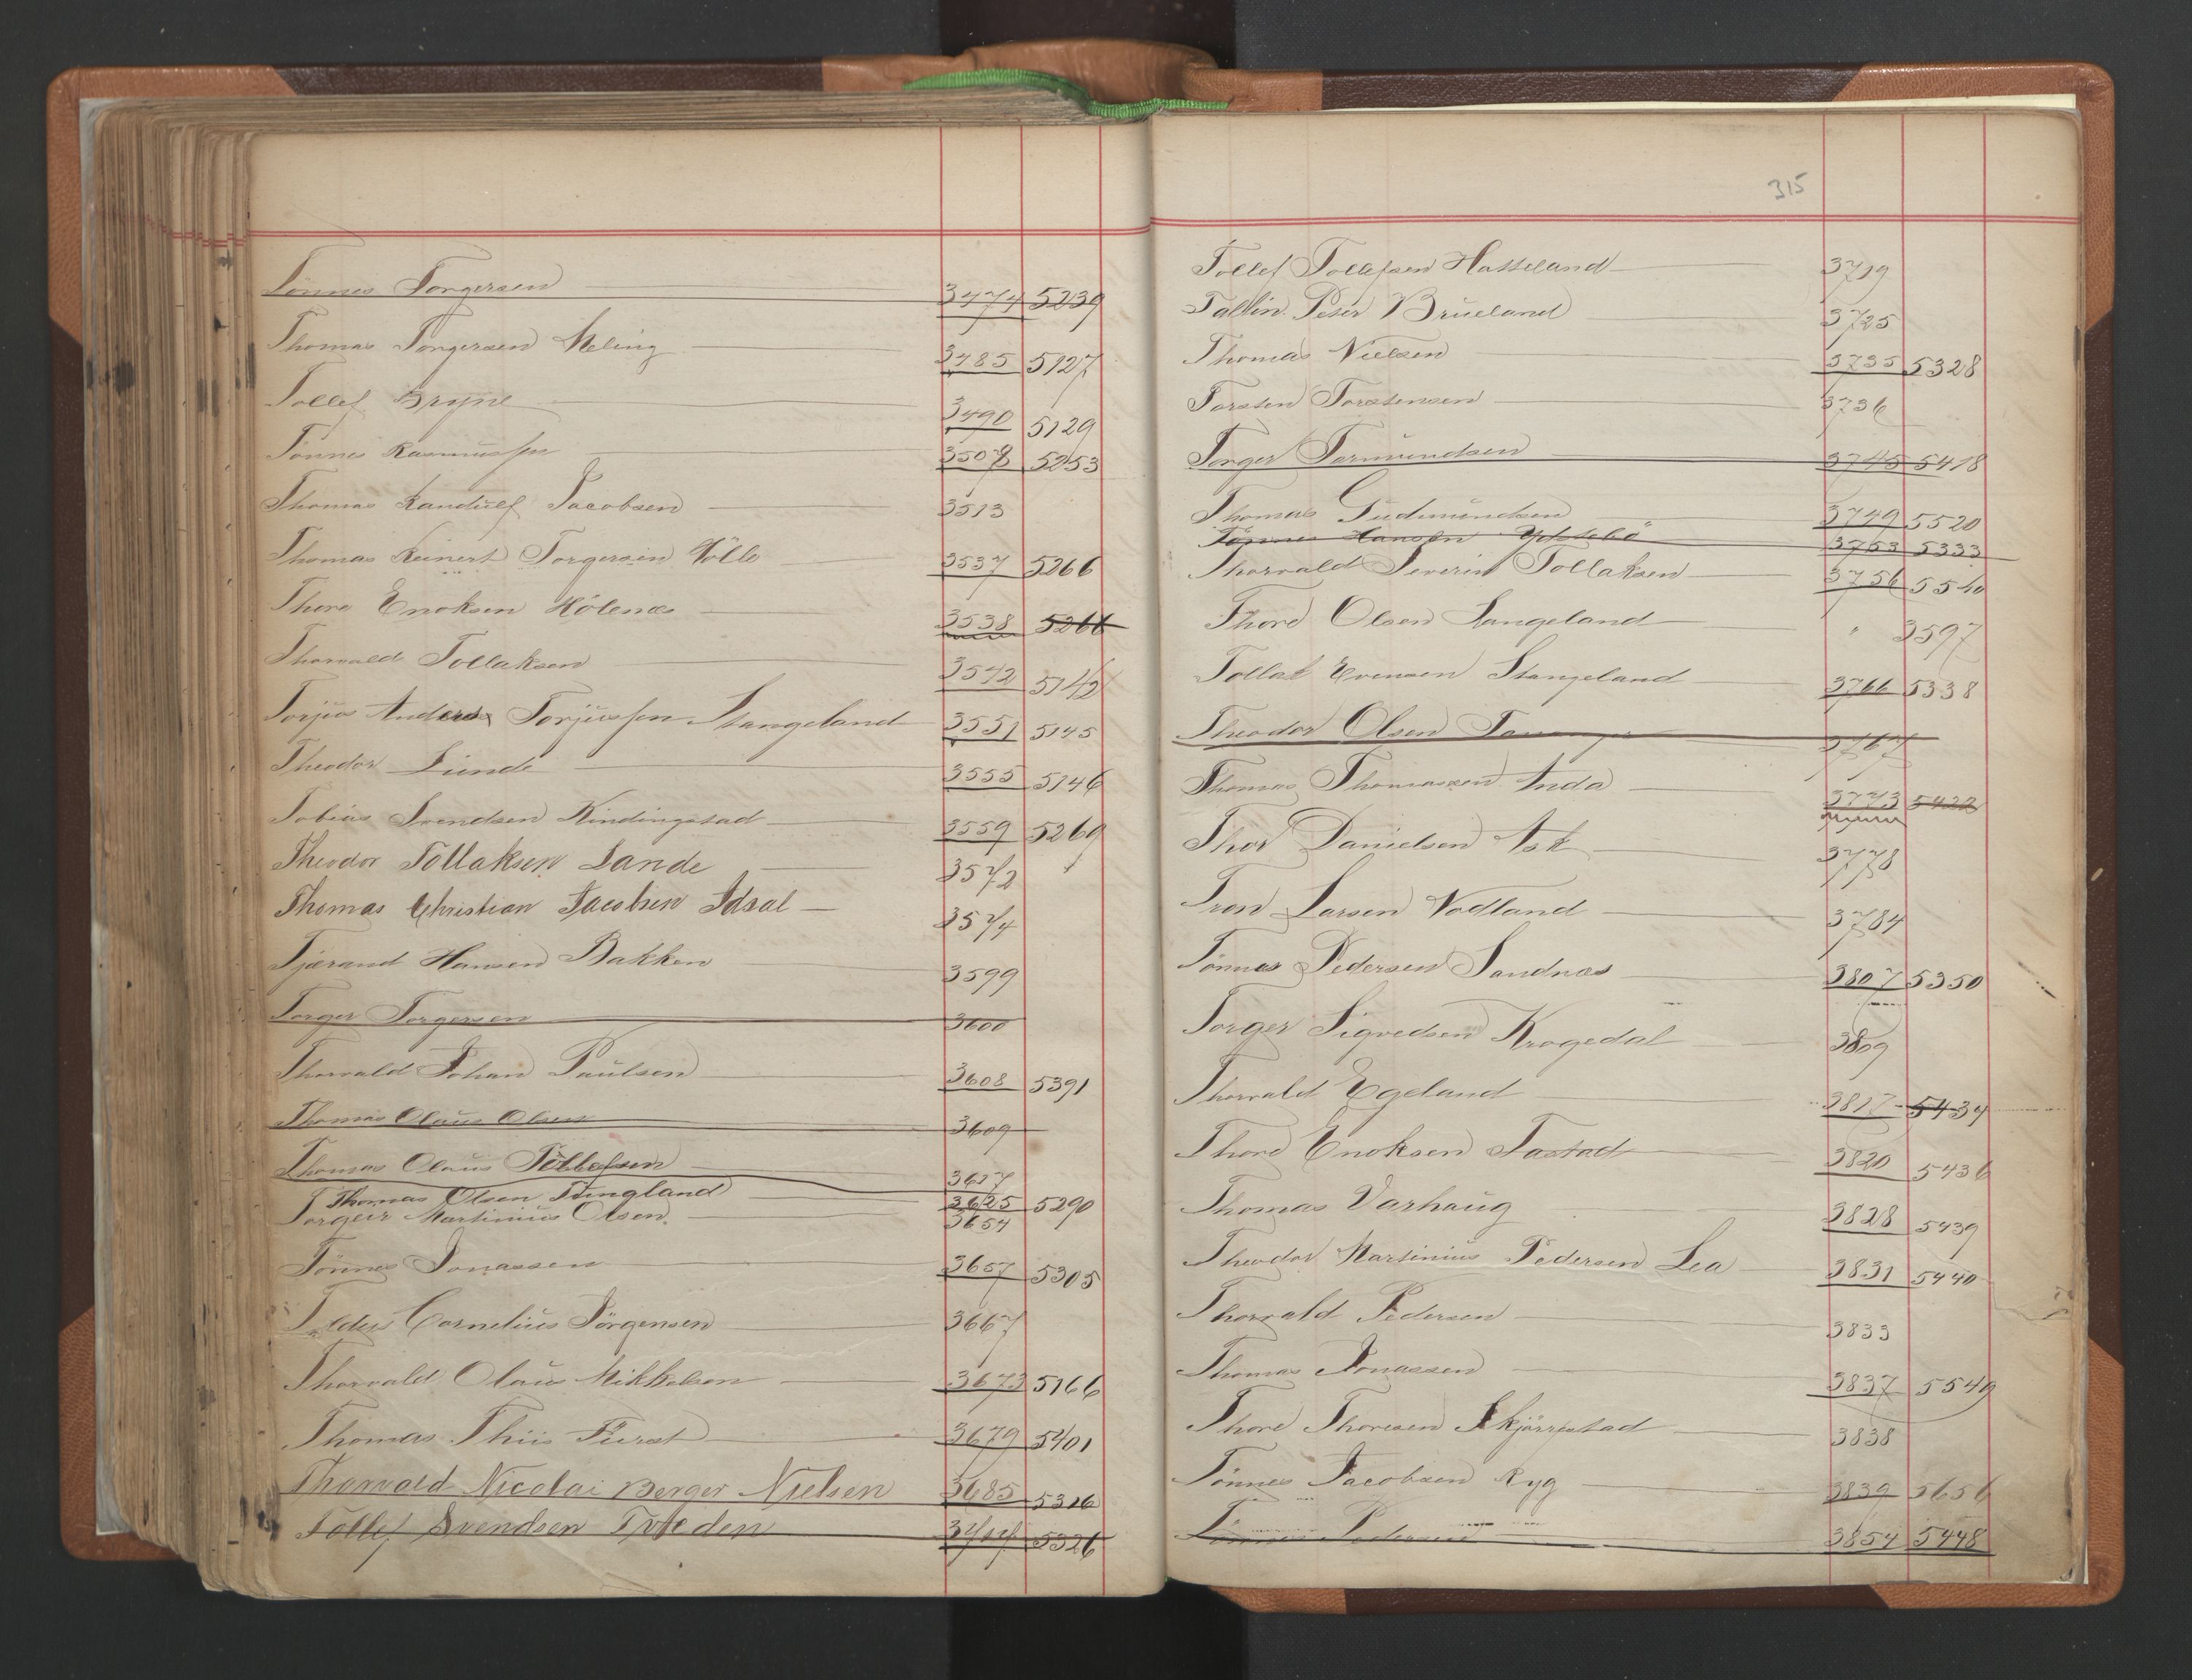 Tönnes Torgersen 3474 5239
Thomas Torgersen Meling 3485 5127
Tollef Bryne 3490 5129
Tönnes Rasmussen 3508 5253
Thomas Randulf Jacobsen 3513
Thomas Reinert Torgersen Tölle 3537 5266
Thore Enoksen Hölenæs 3538 5266
Thorvald Tollaksen 3542 5142
Torjus Anders Torjussen Stangeland 3551 5145
Theodor Lunde 3555 5146
Tobias Svendsen Kindingstad 3559 5269
Theodor Tollaksen Lande 3572
Thomas Christian Jacobsen Idsal 3574
Tjærand Hansen Bakken 3599
Torger Torgersen 3600
Thorvald Johan Paulsen 3608 5391
Thomas Olaus Olsen 3609
Thomas Olaus Tollefsen 3617
Thomas Olsen Tengland 3625 5290
Torgeir Martinius Olsen 3654
Tönnes Jonassen 3657 5305
Cornelius Jörgensen 3667
Thorvald Olaus Mikkelsen 3673 5166
Thomas Thiis Fürst 3679 5401
Thorvald Nicolai Berger Nielsen 3685 5316
Tollef Svendsen Tveden 3707 5326
315
Tollef Tollefsen Hatteland 3719
Tallin Peter Brueland 3725
Thomas Nielsen 3735 5328
Torsten Torstensen 3736
Torger Tormundsen 3745 5418
Thomas Gudmundsen 3749 5520
Tönnes Hansen Ydstebö 3753 5333
Thorvald Severin Tollaksen 3756 5540
Thore Olsen Stangeland " 3597
Tollak Evensen Stangeland 3766 5338
Theodor Olsen 3767
Thomas Thomassen Anda 3773 5422
Thor Danielsen Ask 3778
Tron Larsen Vodland 3784
Tönnes Pedersen Sandnæs 3807 5350
Torger Sigvedsen Krogedal 3809
Thorvald Egeland 3817 5434
Thore Enoksen Tastad 3820 5436
Thomas Varhaug 3828 5439
Theodor Martinius Pedersen Lea 3831 5440
Thorvald Pedersen 3833
Thomas Jonassen 3837 5549
Thore Thoresen Skjörrestad 3838
Tönnes Jacobsen Ryg 3839 5656
Tönnes Pedersen 3854 5448